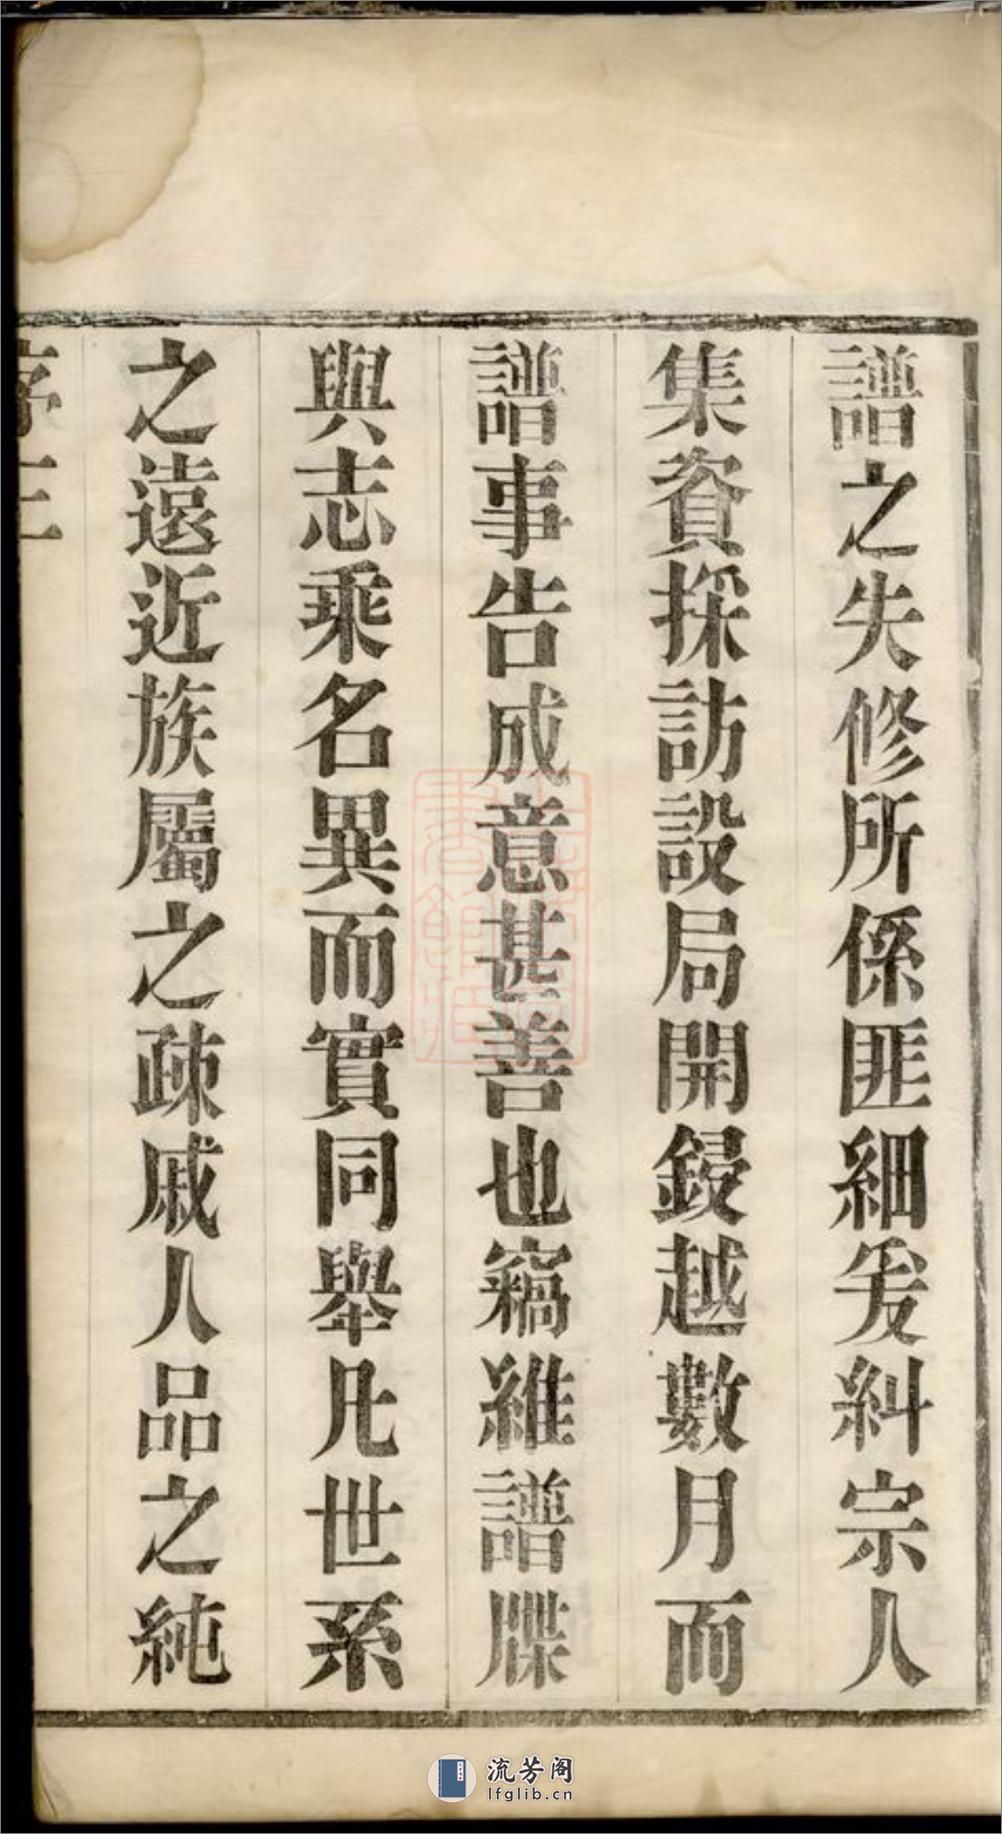 譜之失修所係匪細爰糾宗人
集資採訪設局開鋟越數月而
譜事告成意甚善也竊維譜牒
與志乘名異而實同舉凡世系
之遠近族屬之疎戚人品之純
序 三
流芳阁
lfglib.cn